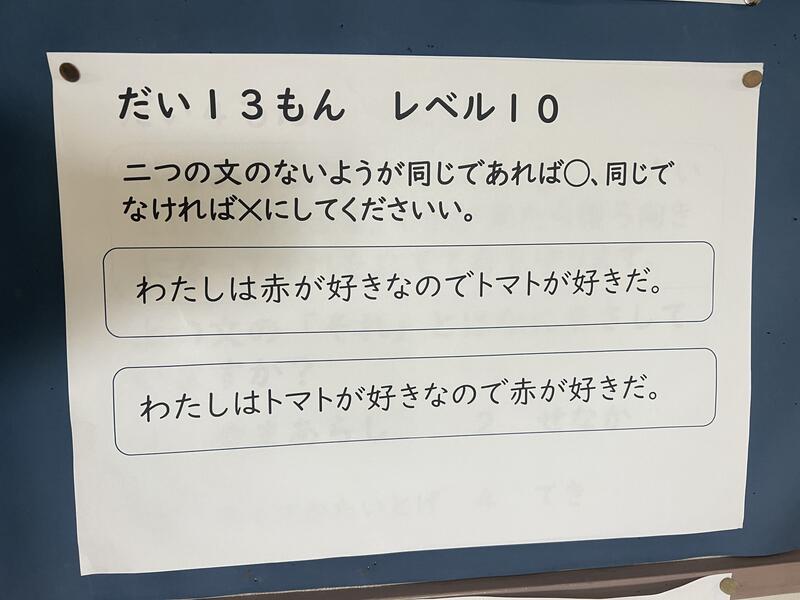 だい13もん　レベル10
二つの文のないようが同じであれば○、同じで
なければ×にしてくださいい。
わたしは赤が好きなのでトマトが好きだ。
わたしはトマトが好きなので赤が好きだ。